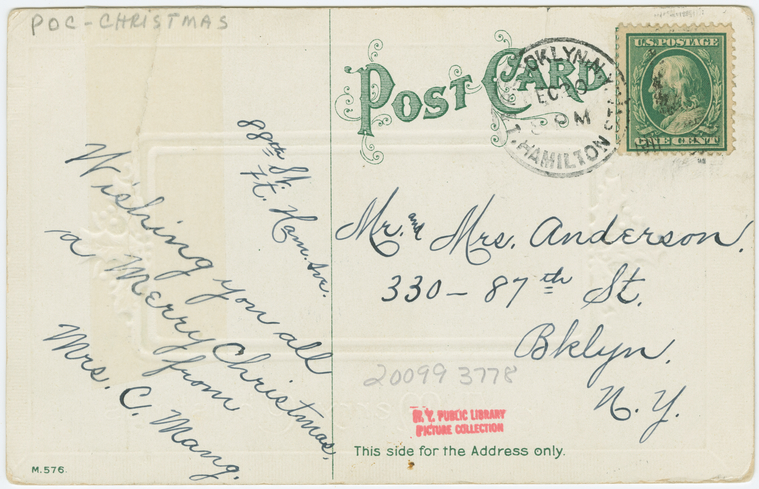 POC-CHRISTMAS
POST CARD
U.S. POSTAGE
ONE CENT
9 PM
HAMILTON ST
88th St.
Ft. Ham. Ave.
Wishing you all
a Merry Christmas,
from
Mrs. C. Mang.
Mr. and Mrs. Anderson.
330-87th St.
Bklyn.
N.Y.
20099 3778
N.Y. PUBLIC LIBRARY
PICTURE COLLECTION
This side for the Address only.
M.576.